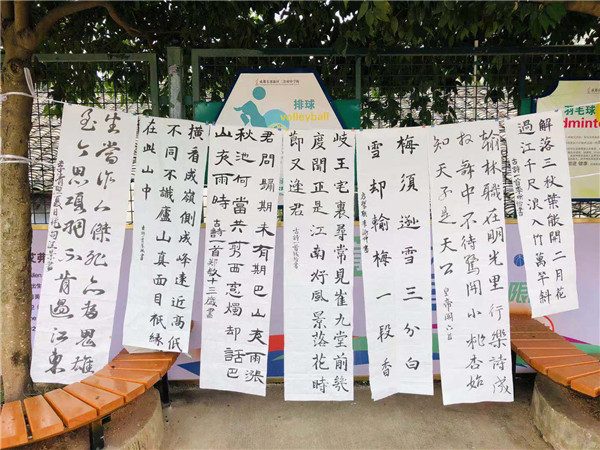 排球
volleyball
羽毛球
dminto
解落三秋葉能開二月花
過江千尺浪入竹萬竿斜
翰林職在明光里行樂詩成
拜舞中不待驚開小桃杏始
知天子是天公
皇帝閣六首
梅須遜雪三分白
雪却輸梅一段香
岐王宅裏尋常見崔九堂前幾
度聞正是江南好風景落花時
節又逢君
君問歸期未有期巴山夜雨漲
秋池何當共剪西窗燭却話巴
山夜雨時
古詩一首
十三歲書
橫看成嶺側成峰遠近高低
不同不識廬山真面目衹緣
在此山中
生當作人傑死亦為鬼雄
至今思項羽不肯過江東
限